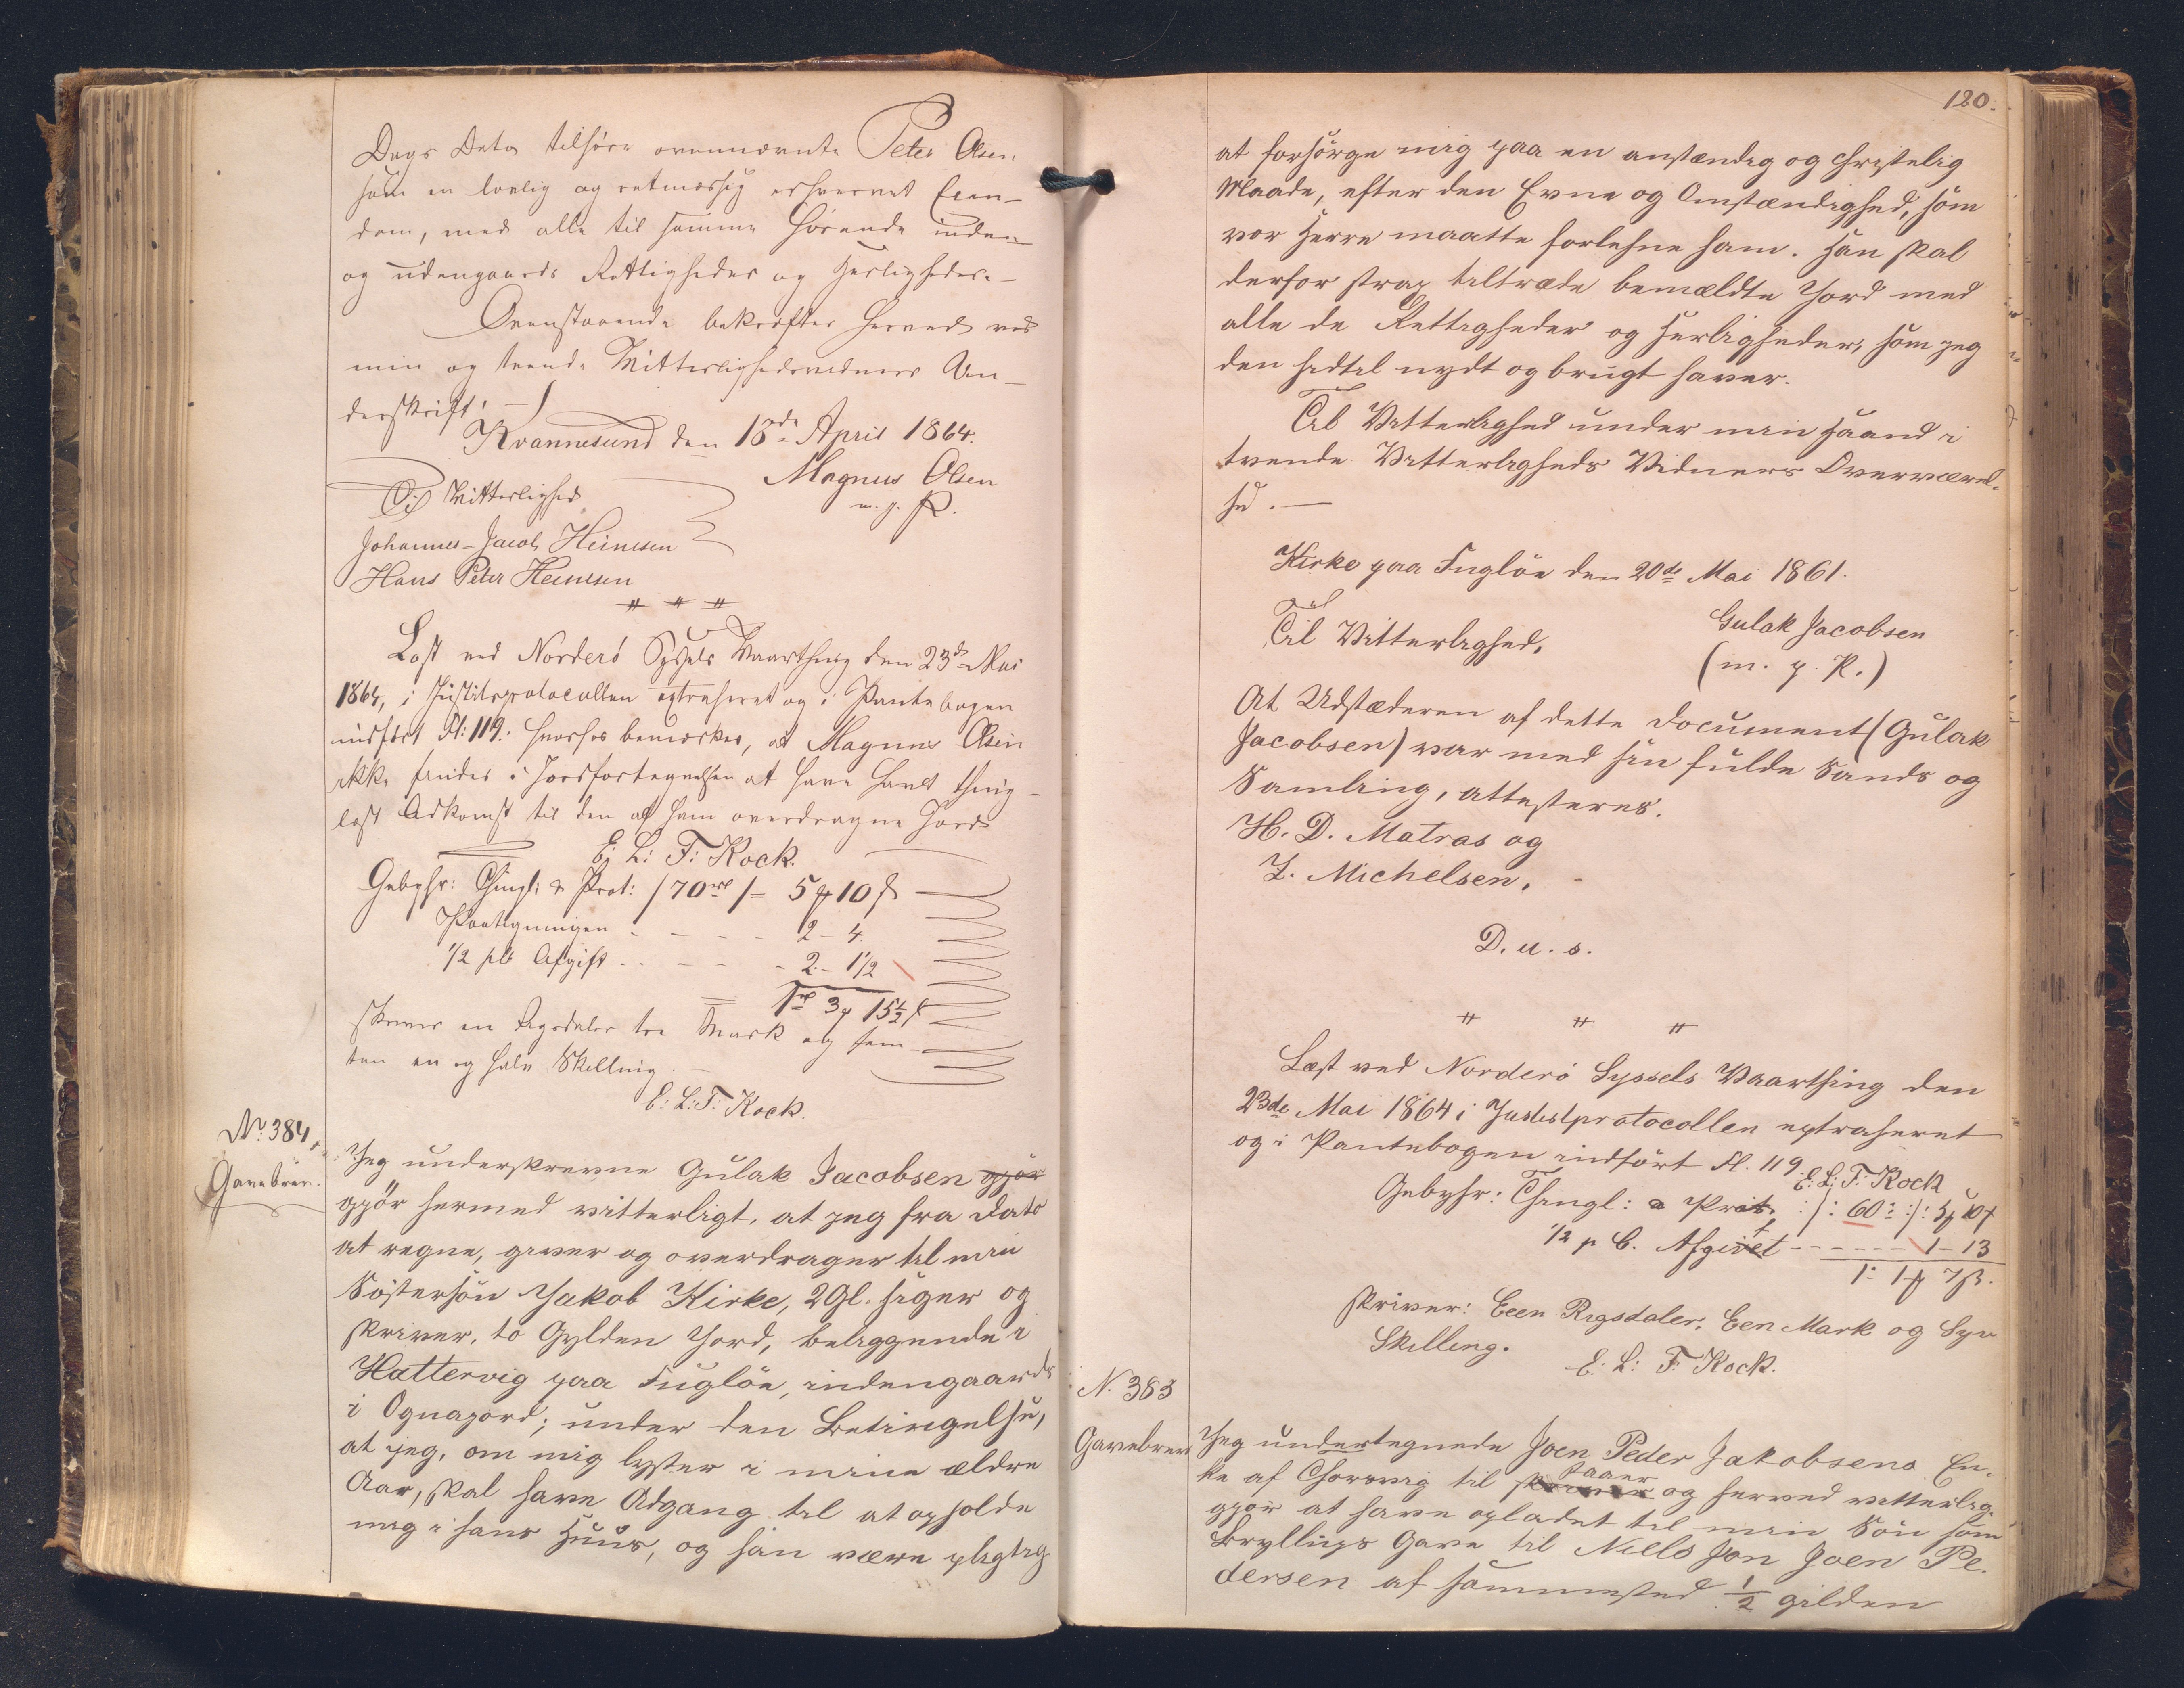 Dags Dato tilhøre ovennævnte Peter Olsen
som en lovlig og retmæssig erhvervet Eien-
dom, med alle til samme hørende inden-
og udengaards Rettigheder og Herligheder.-
Ovenstaaende bekræftes herved ved
min og tvende Vitterlighedsvidners Un-
derskrift.
Kvannesund den 18de April 1864.
Magnus Olsen
m. p. P.
Til Vitterlighed
Johannes-Jacob Heinesen
Hans Peter Heinesen
" " "
Læst ved Norderø Syssels Vaarthing den 23de Mai
1864, i Justitsprotocollen extraheret og i Pantebogen
indført Fl: 119. hvorhos bemærkes, at Magnus Olsen
ikke findes i Jordfortegnelsen at have havt thing-
læst Adkomst til den af ham overdragne Jord
E: L: F: Kock.
Gebyhr: Thingl: & Prot: /70rd/ = 5 10
Paategningen - - - - 2 - 4.
1/2 pCt Afgift - - - - 2 - 1 1/2
1rd 3 15 1/2
skriver en Rigsdaler tre Mark og fem-
ten en og halv Skilling.
E: L: F: Kock.
No: 384.
Gavebrev.
Jeg underskrevne Gulak Jacobsen gjør
gjør hermed vitterligt, at jeg fra Dato
at regne, giver og overdrager til min
Søstersøn Jakob Kirke, 2 Gl. siger og
skriver, to Gylden Jord, beliggende i
Hattervig paa Fugløe, indengaards
i Ognajord; under den Betingelse,
at jeg, om mig lyster i mine ældre
Aar, skal have Adgang til at opholde
mig i hans Huus, og han være pligtig
120.
at forsørge mig paa en anstændig og christelig
Maade, efter den Evne og Omstændighed, som
vor Herre maatte forlehne ham. Han skal
derfor strax tiltræde bemældte Jord med
alle de Rettigheder og Herligheder, som jeg
den hidtil nydt og brugt haver.
Til Vitterlighed under min Haand i
tvende Vitterligheds Vidners Overværel-
se. —
Kirke paa Fugløe den 20de Mai 1861.
Til Vitterlighed,
Gulak Jacobsen
(m. p. P.)
At Udstæderen af dette Document (Gulak
Jacobsen) var med sin fulde Sands og
Samling, attesteres.
H. D. Matras og
Z. Michelsen.
D. u. s.
" " "
Læst ved Norderø Syssels Vaarthing den
23de Mai 1864 i Justistprotocollen extraheret
og i Pantebogen indført Fl. 119.
E: L: F: Kock
Gebyhr: Thingl: & Prot. /: 60 :/: 5 10
1/2 p C. Afgivet - - - - - - 1 - 13
1: 1 7ß.
skriver: Een Rigsdaler, Een Mark og Syv
Skilling.
E: L: F: Kock.
N. 383
Gavebrev
Jeg undertegnede Joen Peder Jakobsens En-
ke af Thorsvig til staaer og herved vitterlig
gjør at have opladet til min Søn som
Bryllups Gave til Niels Jon Joen Pe-
dersen af sammested 1/2 gilden